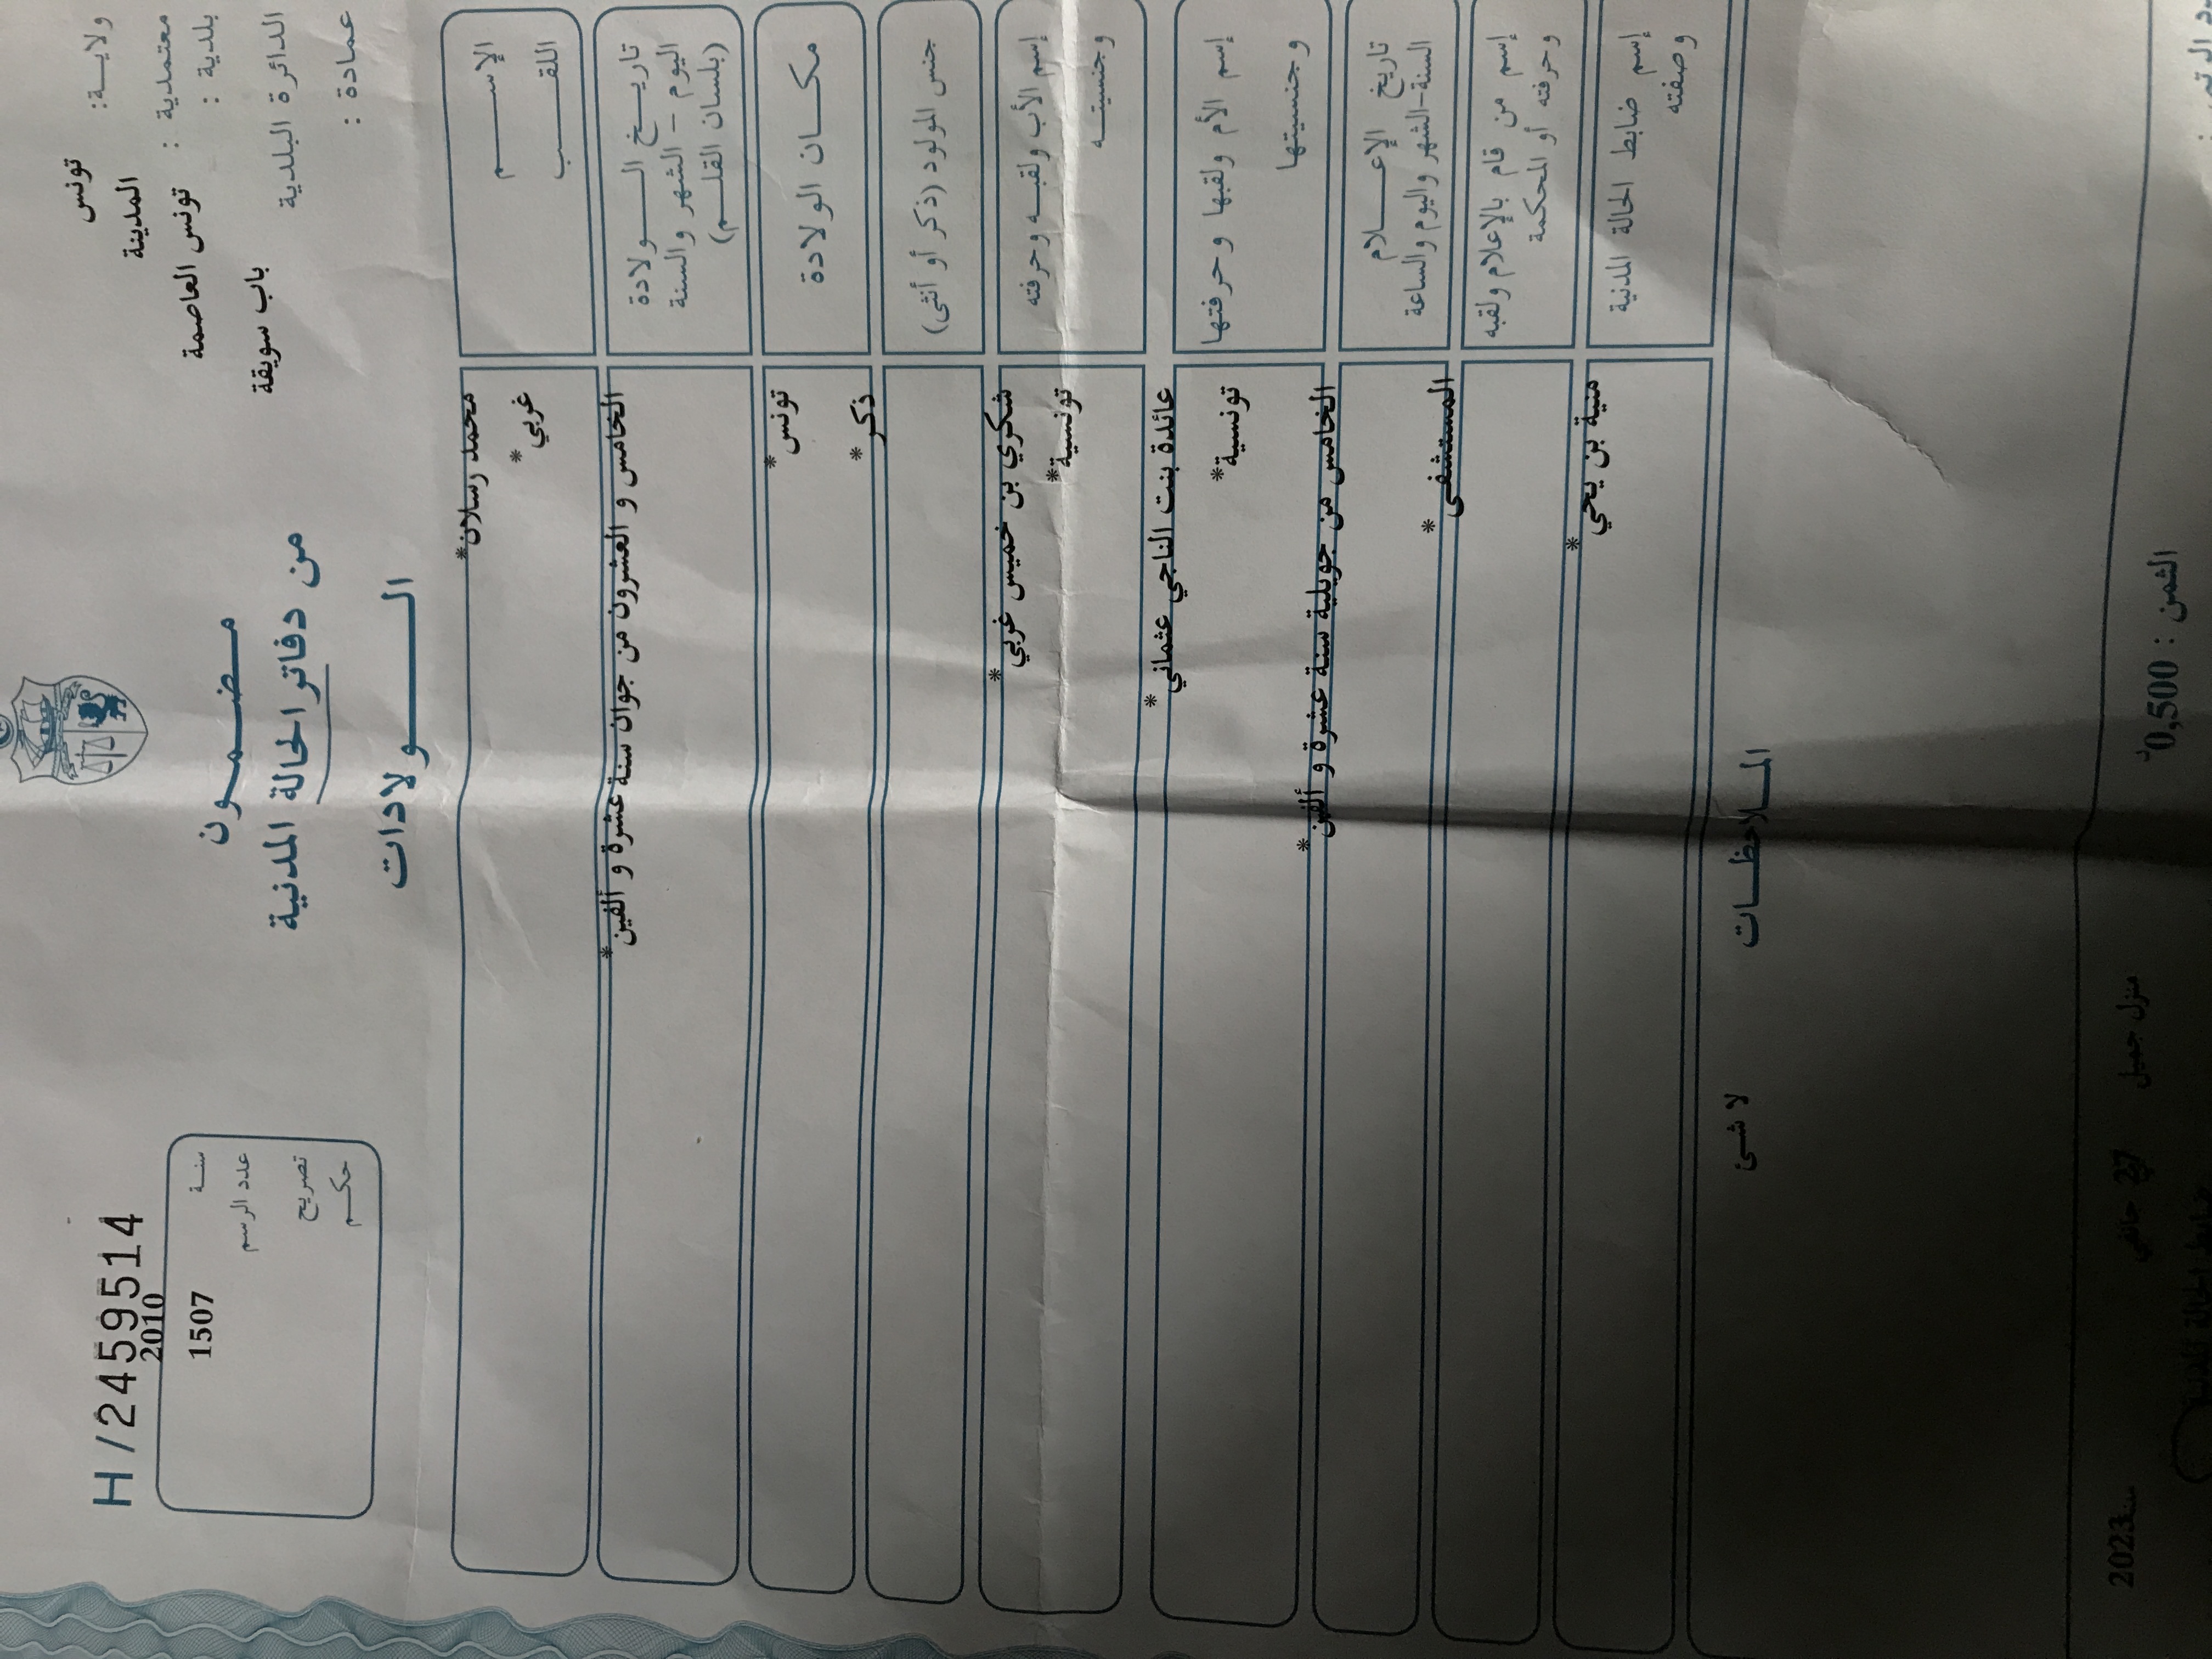 ولايـة: تونس
معتمدية : المدينة
بلدية : تونس العاصمة
الدائرة البلدية باب سويقة
عمادة :
مـضـمـون
من دفاتر الحالة المدنية
الـــولادات
H/2459514
سنـة 2010
عدد الرسم 1507
تصريح
حكـم
الإســـم محمد رسلان*
اللقـــب غربي*
تاريـخ الــولادة الخامس و العشرون من جوان سنة عشرة و ألفين*
اليوم – الشهر والسنة
(بلسان القلـم)
مكـان الولادة تونس*
جنس المولود (ذكر أو أنثى) ذكر*
إسم الأب ولقبـه وحرفته شكري بن خميس غربي*
وجنسيتـه تونسية*
إسم الأم ولقبها وحرفتها عائدة بنت الناجي عثماني*
وجنسيتها تونسية*
تاريخ الإعـلام الخامس من جويلية سنة عشرة و ألفين*
السنة-الشهر واليوم والساعة
إسم من قام بالإعلام ولقبه المستشفى*
وحرفته أو المحكمة
إسم ضابط الحالة المدنية منية بن يحي*
وصفته
المـلاحظـات
لا شئ
الثمن : 0,500 د
منزل جميل 27 جانفي 2023